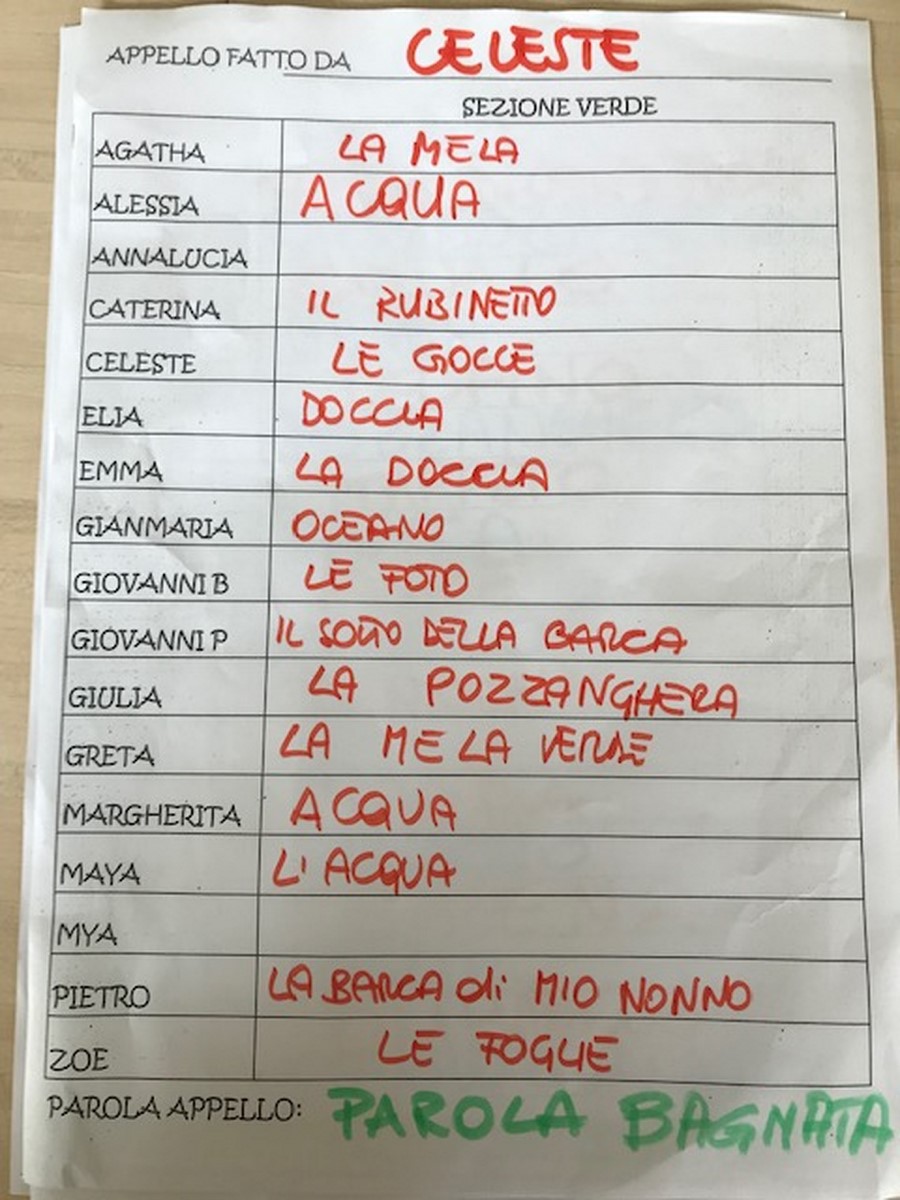 APPELLO FATTO DA CELESTE
SEZIONE VERDE
AGATHA LA MELA
ALESSIA ACQUA
ANNALUCIA
CATERINA IL RUBINETTO
CELESTE LE GOCCE
ELIA DOCCIA
EMMA LA DOCCIA
GIANMARIA OCEANO
GIOVANNI B LE FOTO
GIOVANNI P IL SOTTO DELLA BARCA
GIULIA LA POZZANGHERA
GRETA LA MELA VERDE
MARGHERITA ACQUA
MAYA L'ACQUA
MYA
PIETRO LA BARCA di MIO NONNO
ZOE LE FOGLIE
PAROLA APPELLO: PAROLA BAGNATA